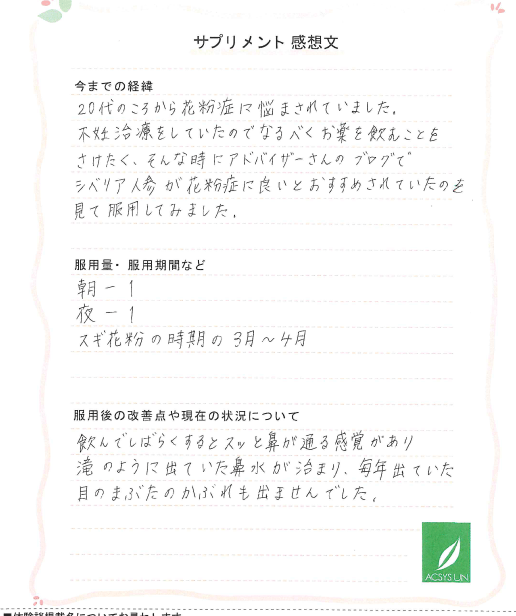 サプリメント 感想文
今までの経緯
20代のころから花粉症に悩まされていました。
不妊治療をしていたのでなるべくお薬を飲むことを
さけたく、そんな時にアドバイザーさんのブログで
シベリア人参が花粉症に良いとおすすめされていたのを
見て服用してみました。
服用量・服用期間など
朝ー1
夜ー1
スギ花粉の時期の3月〜4月
服用後の改善点や現在の状況について
飲んでしばらくするとスッと鼻が通る感覚があり
滝のように出ていた鼻水が治まり、毎年出ていた
目のまぶたのかぶれも出ませんでした。
ACSYS LIN